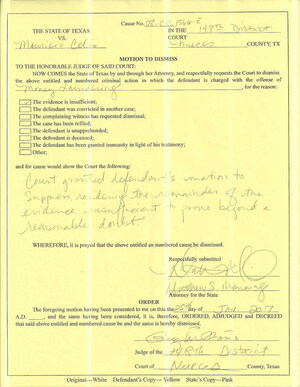 Cause No. 08-CR-1966-E
THE STATE OF TEXAS IN THE 148th District
VS. COURT
Mauricio Celis Nueces COUNTY, TX
MOTION TO DISMISS
TO THE HONORABLE JUDGE OF SAID COURT:
NOW COMES the State of Texas by and through her Attorney, and respectfully requests the Court to dismiss
the above entitled and numbered criminal action in which the defendant is charged with the offense of
Money Laundering , for the reason:
The evidence is insufficient;
The defendant was convicted in another case;
The complaining witness has requested dismissal;
The case has been refiled;
The defendant is unapprehended;
The defendant is deceased;
The defendant has been granted immunity in light of his testimony;
Other;
and for cause would show the Court the following:
Court granted defendant's motion to
Suppress rendering the remainder of the
evidence insufficient to prove beyond a
reasonable doubt.
WHEREFORE, it is prayed that the above entitled an numbered cause be dismissed.
Respectfully submitted
Matthew S. Manning
Attorney for the State
ORDER
The foregoing motion having been presented to me on this day of Jan. 2017
A.D. , and the same having been considered, it is, therefore, ORDERED, ADJUDGED and DECREED
that said above entitled and numbered cause be and the same is hereby dismissed.
Judge of the 148th District
Court of Nueces County, Texas
Original—White Defendant's Copy—Yellow State's Copy—Pink